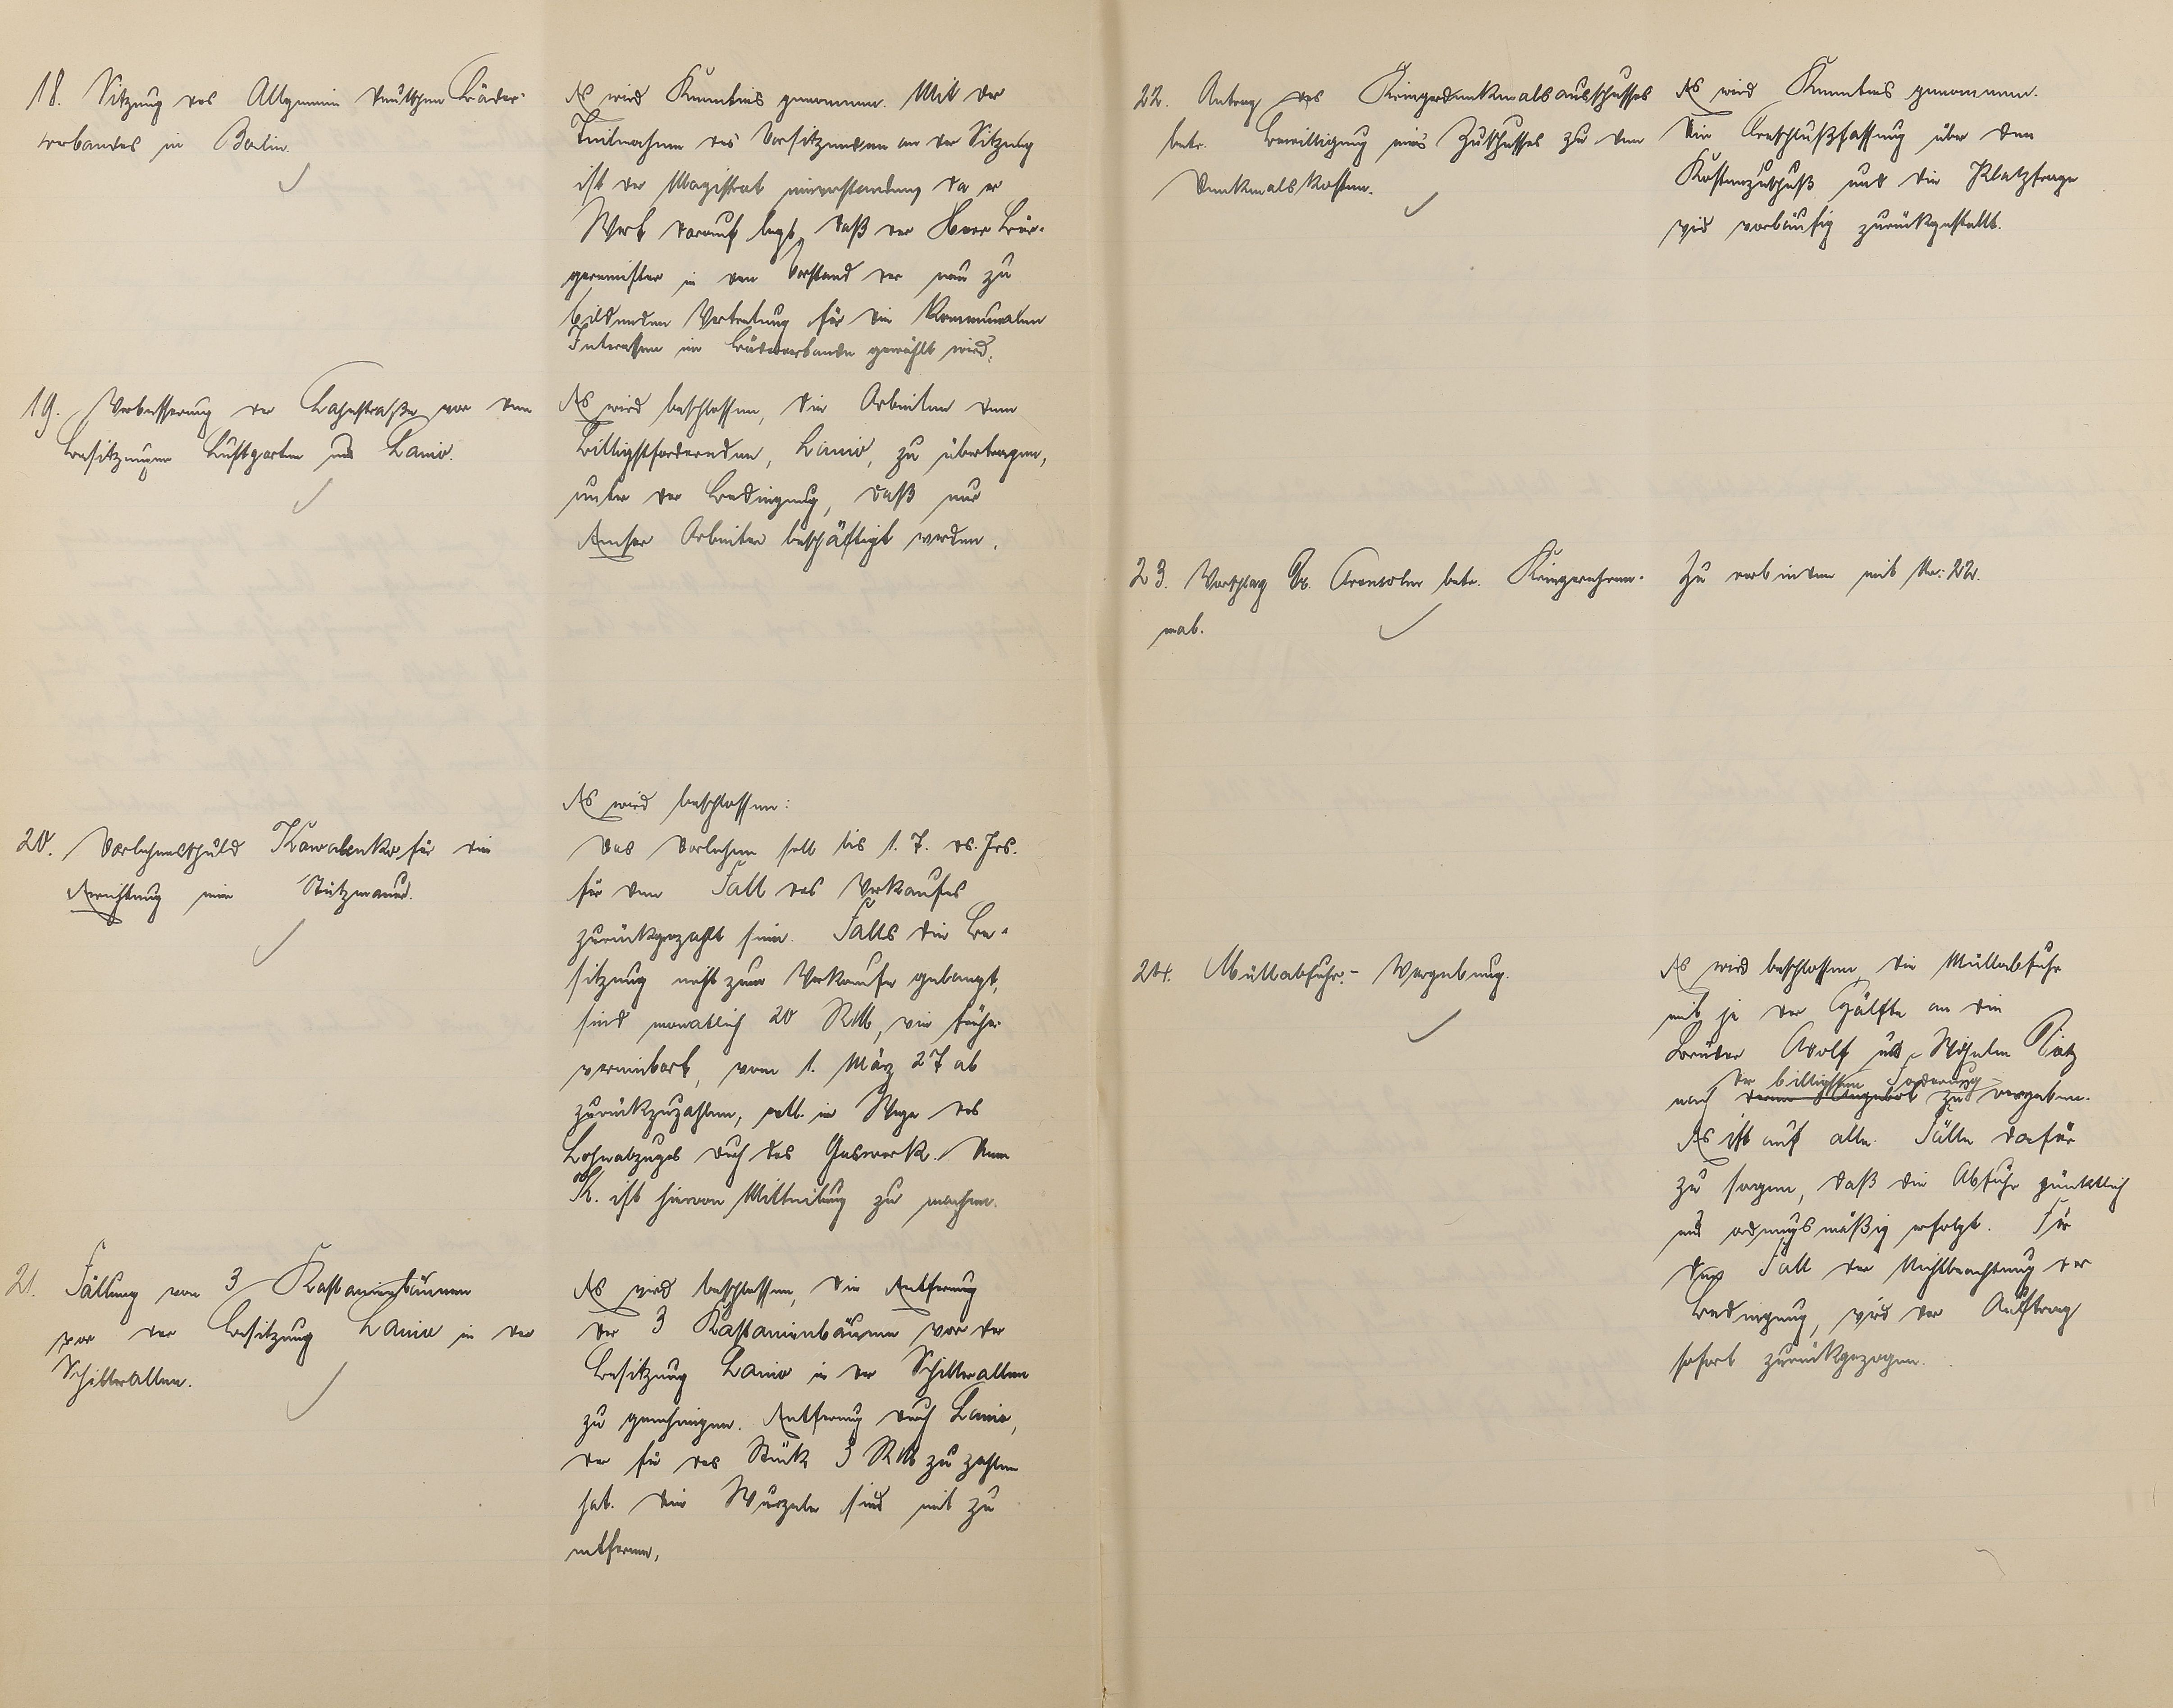 18. Sitzung des Allgemein Deutschen Bäder-
verbandes in Berlin.
Es wird Kenntnis genommen. Mit der
Teilnahme des Vorsitzenden an der Sitzung
ist der Magistrat einverstanden, da er
Wert darauf legt, daß der Herr Bür-
germeister in den Vorstand der neu zu
bildenden Vertretung für die Kommunalen
Interessen im Bäderverbande gewählt wird.
19. Verbesserung der Lahnstraße vor den
Besitzungen Lustgarten und Lanio.
Es wird beschlossen, die Arbeiten dem
Billigstfordernden, Lanio, zu übertragen,
unter der Bedingung, daß nur
Emser Arbeiter beschäftigt werden.
20. Darlehensschuld Kawalenko für die
Errichtung einer Stützmauer.
Es wird beschlossen:
Das Darlehen soll bis 1. 7. ds. Jrs.
für den Fall des Verkaufes
zurückgezahlt sein. Falls die Be-
sitzung nicht zum Verkaufe gelangt,
sind monatlich 20 RM, wie früher
vereinbart, vom 1. März 27 ab
zurückzuzahlen, evtl. im Wege des
Lohnabzuges durch das Gaswerk. Dem
K. ist hiervon Mitteilung zu machen.
21. Fällung von 3 Kastanienbäumen
vor der Besitzung Lanio in der
Schillerallee.
Es wird beschlossen, die Entfernung
der 3 Kastanienbäume vor der
Besitzung Lanio in der Schillerallee
zu genehmigen. Entfernung durch Lanio,
der für das Stück 3 RM zu zahlen
hat. Die Wurzeln sind mit zu
entfernen.
22. Antrag des Kriegerdenkmalsausschusses
betr. Bewilligung eines Zuschusses zu den
Denkmalskosten.
Es wird Kenntnis genommen.
Die Beschlußfassung über den
Kostenzuschuß und die Platzfrage
wird vorläufig zurückgestellt.
23. Vorschlag Dr. betr. Kriegerehren-
mal.
Zu verbinden mit Nr: 22.
24. Müllabfuhr - Vergebung.
Es wird beschlossen, die Müllabfuhr
mit je der Hälfte an die
Brüder Adolf und Wilhelm
der billigsten Forderung
nach deren Angebot zu vergeben.
Es ist auf alle Fälle dafür
zu sorgen, daß die Abfuhr pünktlich
und ordnungsmäßig erfolgt. Für
den Fall der Nichtbeachtung der
Bedingung, wird der Auftrag
sofort zurückgezogen.